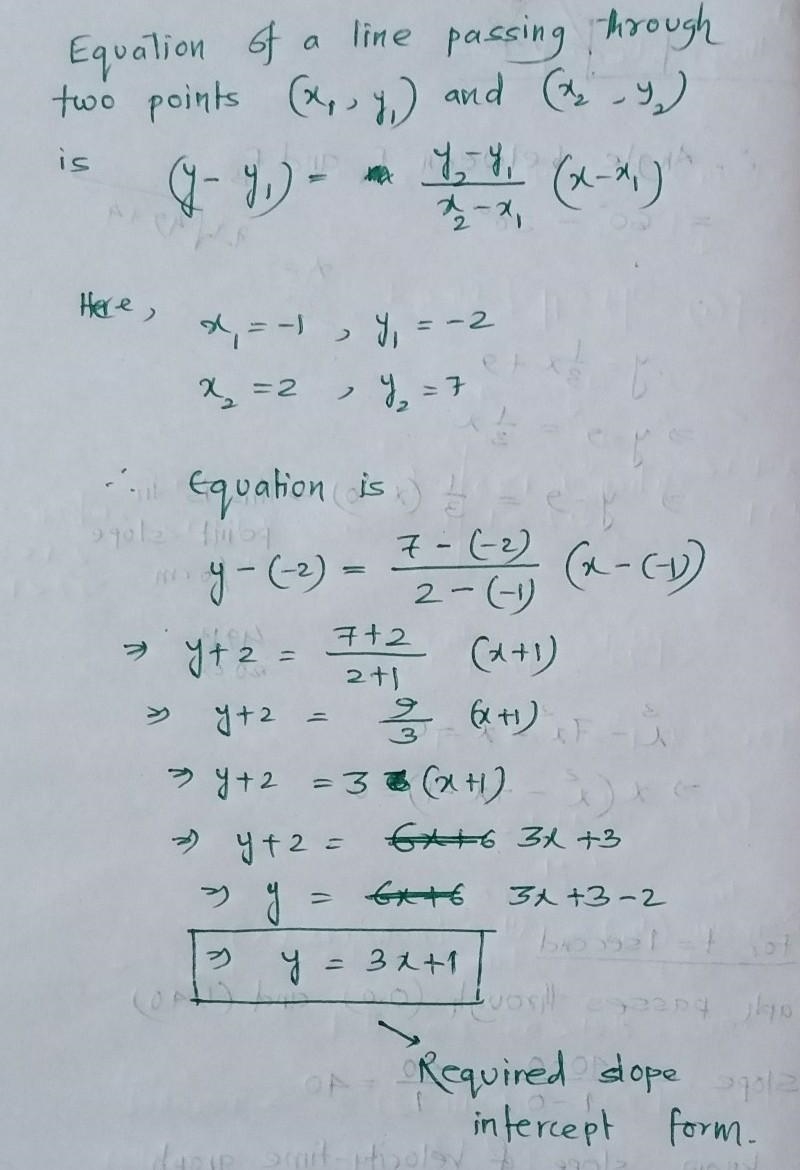 Equation of a line passing through
two points (x₁, y₁) and (x₂, y₂)
is (y - y₁) = y₂-y₁/x₂-x₁ (x-x₁)
Here, x₁ = -1 , y₁ = -2
x₂ = 2 , y₂ = 7
∴ Equation is
y - (-2) = 7 - (-2)/2 - (-1) (x - (-1))
⇒ y+2 = 7+2/2+1 (x+1)
⇒ y+2 = 9/3 (x+1)
⇒ y+2 = 3 (x+1)
⇒ y+2 = 6x+6 3x +3
⇒ y = 6x+6 3x +3 -2
⇒ y = 3x+1
Required slope
intercept form.